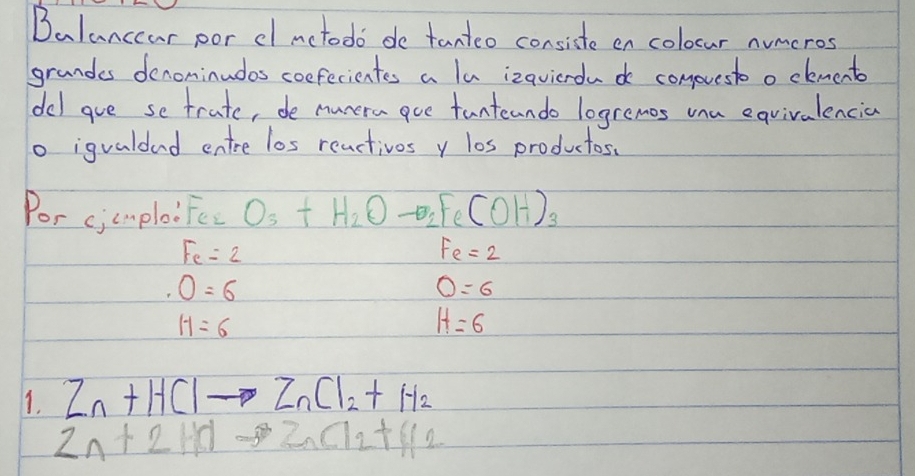 Balancear por el metodó de tanteo consiste en colocar numeros
grandes denominados coefecientes a la izquierda de compuesto o elemento
del que se trate, de manera que tanteando logremos una equivalencia
o igualdad entre los reactivos y los productos.
Por ejemplo: Fe2 O3 + H2O → 2Fe(OH)3
Fe = 2 Fe = 2
O = 6 O = 6
H = 6 H = 6
1. Zn + HCl → ZnCl2 + H2
Zn + 2HCl → ZnCl2 + H2